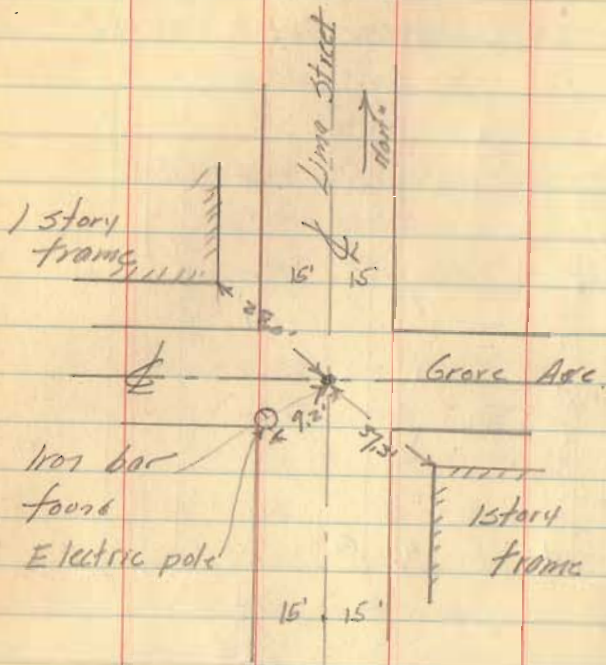 Lime Street
North
1 story
frame
15' 15
℄
Grove Ave.
9.2'
37.3'
Iron bar
found
Electric pole
1 story
frame
15' 15'